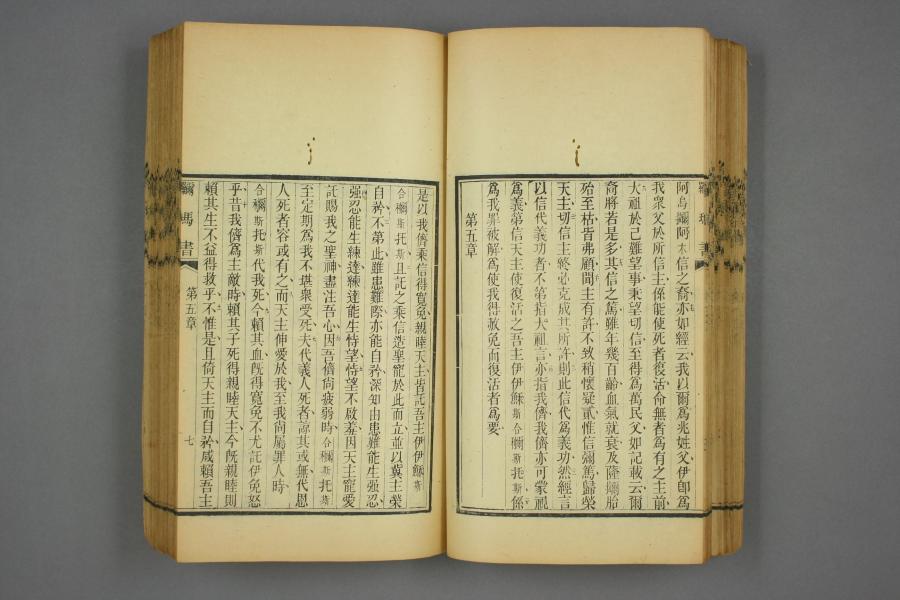 阿烏爾阿木信之裔亦如經云我以爾爲兆姓父伊卽爲
我衆父於所信主係能使死者復活命無者爲有之主前
大祖於己難望事乘望切信至得爲萬民父如記載云爾
裔將若是多其信之篤雖年幾百齡血氣就衰及薩爾胎
殆至枯皆弗顧聞主有許不致稍懷疑貳惟信彌篤歸榮
天主切信主終必克成其所許則此信代爲義功然經言
以信代義功者不第指大祖言亦指我儕我儕亦可蒙視
爲義第信天主使復活之吾主伊伊穌斯合爾斯托斯係
爲我罪被解爲使我得赦免而復活者爲要
第五章
是以我儕乘信得寬免親睦天主皆託吾主伊伊穌斯
合爾斯托斯且託之乘信造聖寵於此而立並以冀主榮
自矜不第此雖患難際亦能自矜深知由患難能生强忍
强忍能生練達練達能生恃望恃望不啟羞因天主寵愛
託賜我之聖神盡注吾心因吾儕尙疲弱時合爾斯托斯
至定期爲我不堪衆受死夫代義人死者諒其或無代恩
人死者容或有之而天主伸愛於我至我尙屬罪人時
合爾斯托斯代我死今賴其血旣得寬免不尤託伊免怒
乎昔我儕爲主敵時賴其子死得親睦天主今旣親睦則
賴其生不益得救乎不惟是且倚天主而自矜咸賴吾主
爾馬書
第五章
七